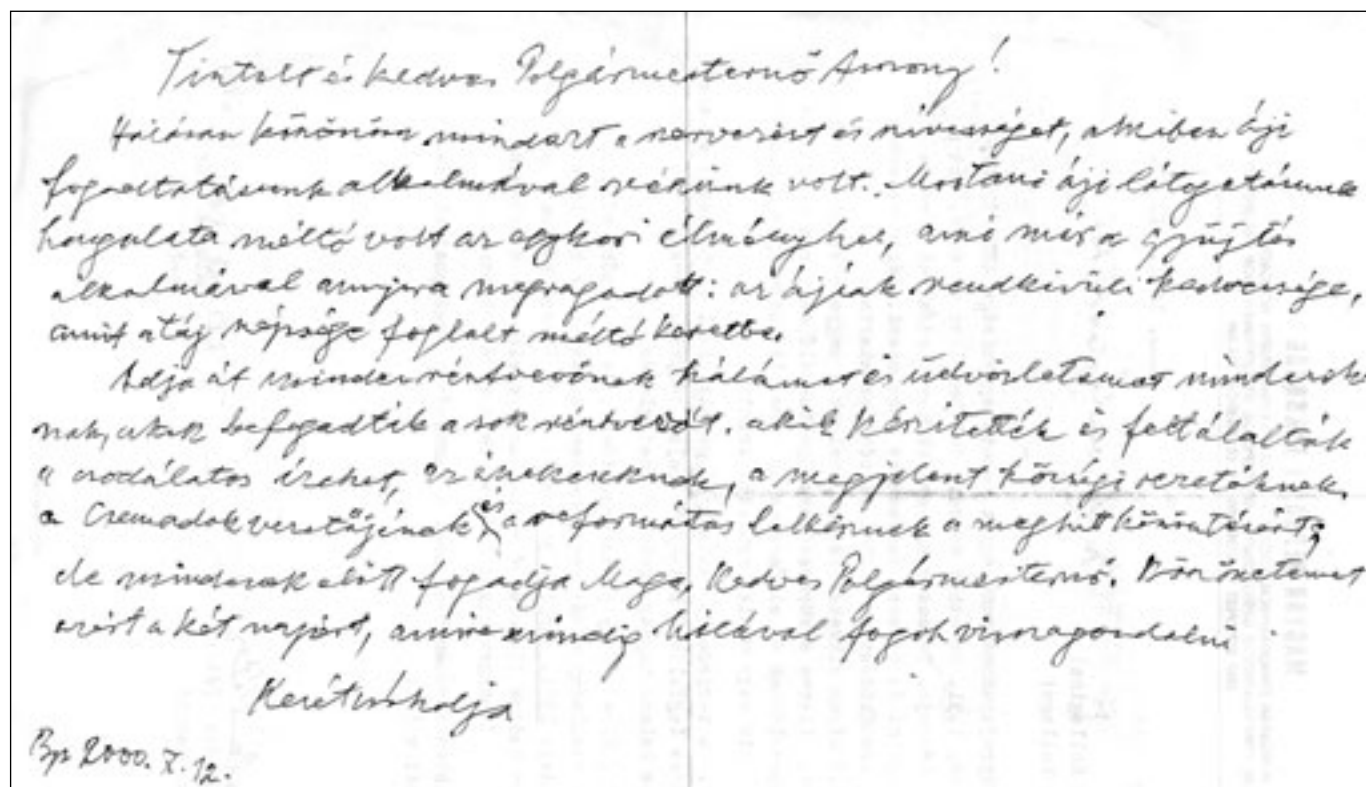 Tisztelt és kedves Polgármesternő Asszony!
Hálásan köszönöm mindazt a szervezést és szívességet, amiben áji
fogadtatásunk alkalmával részünk volt. Mostani áji látogatásunk
hangulata méltó volt az egykori élményhez, ami már a gyűjtés
alkalmával annyira megragadott: az ájiak rendkívüli kedvessége,
amit a táj szépsége foglalt méltó keretbe.
Adja át minden résztvevőnek hálámat és üdvözletemet mindazok-
nak, akik befogadták a sok résztvevőt, akik készítették és feltálalták
a csodálatos ízeket, az énekeseknek, a megjelent községi vezetőknek,
a Csemadok vezetőjének és a református lelkésznek a meghitt köszöntésért;
de mindezek előtt fogadja Maga, Kedves Polgármesternő, köszönetemet
azért a két napért, amire mindig hálával fogok visszagondolni
Kezét csókolja
Bp 2000. X. 12.